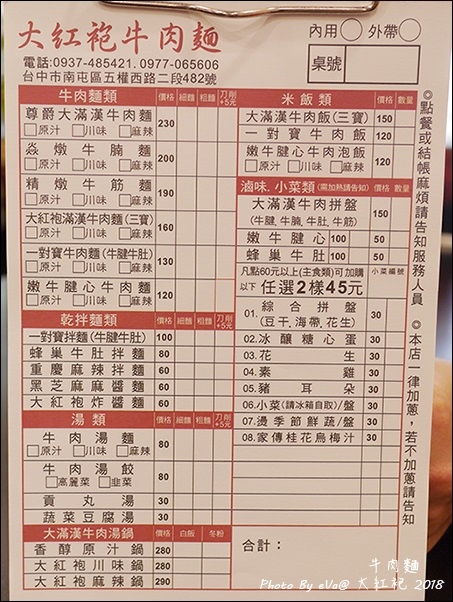 大紅袍牛肉麵
電話:0937-485421. 0977-065606
台中市南屯區五權西路二段482號
內用 外帶
桌號
牛肉麵類 價格 細麵 粗麵 刀削+5元
尊爵大滿漢牛肉麵 230
原汁 川味 麻辣
焱燉牛腩麵 200
原汁 川味 麻辣
精燉牛筋麵 190
原汁 川味 麻辣
大紅袍滿漢牛肉麵(三寶) 160
原汁 川味 麻辣
一對寶牛肉麵(牛腱牛肚) 130
原汁 川味 麻辣
嫩牛腱心牛肉麵 120
原汁 川味 麻辣
乾拌麵類 價格 細麵 粗麵 刀削+5元
一對寶拌麵(牛腱牛肚) 100
蜂巢牛肚拌麵 80
重慶麻辣拌麵 60
黑芝麻麻醬麵 60
大紅袍炸醬麵 60
湯類 價格 細麵 粗麵 刀削+5元
牛肉湯麵 80
原汁 川味 麻辣
牛肉湯餃 80
高麗菜 韭菜
貢丸湯 30
蔬菜豆腐湯 30
大滿漢牛肉湯鍋 價格 白飯 冬粉
香醇原汁鍋 280
大紅袍川味鍋 280
大紅袍麻辣鍋 290
米飯類 價格 數量
大滿漢牛肉飯(三寶) 150
一對寶牛肉飯 120
嫩牛腱心牛肉泡飯 120
原汁 川味 麻辣
滷味.小菜類(需加熱請告知) 價格 數量
大滿漢牛肉拼盤 150
(牛腱,牛腩,牛肚,牛筋)
嫩牛腱心 100 50
蜂巢牛肚 100 50
凡點60元以上(主食類)可加購 小菜編號
以下 任選2樣45元
01. 綜合拼盤 30
(豆干,海帶,花生)
02.冰釀糖心蛋 30
03.花生 30
04.素雞 30
05.豬耳朵 30
06.小菜(請冰箱自取)/盤 30
07.燙季節鮮蔬/盤 30
08.家傳桂花烏梅汁 30
合計：
◎點餐或結帳麻煩請告知服務人員
◎本店一律加蔥，若不加蔥請告知
牛肉麵
Photo By eVo@ 大紅袍 2018